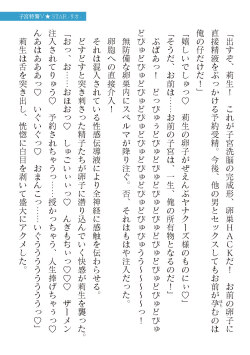 「出すぞ、莉生!　これが子宮洗脳の完成形　卵巣HACKだ!　お前の卵子に
直接精液をぶっかける予約受精、今後、他の男とセックスしてもお前が孕むのは
俺の仔だけだ!」
「嬉しいでしゅっ♡　莉生の卵子がぜえんぶヤナクーズ様のものにぃ♡」
「そうだ、お前は……お前の子宮は、一生、俺の所有物となるのだ!」
　ぶばあっ!　どっびゅうどびゅどびゅどびゅどびゅっどびゅっどびゅどびゅ
どびゅどびゅどびゅどびゅどびゅどびゅっどびゅぅうう〜〜〜〜っ!
　無防備な卵巣内にスペルマが降り注ぐ。否、それはもはや注入だった。
　卵胞への直接介入!
　それは混入されている性感伝導液により全神経に感触を伝わらせる。
　どすどすと突き刺さった精子たちが卵子に潜り込んでいく快感が莉生を襲った。
「おっ♡　お……おほおっ♡　いっ♡　んきもちぃっ♡♡　ザーメン
注入されてりゅっ♡　予約されちゃうっ……授かっちゃう、人生捧げちゃうっ♡
んあはあああっ♡　いぐぃぐっ♡　おまんこ……いくううううううっ♡」
　莉生は舌を突き出し、恍惚に白目を剥いて盛大にアクメした。